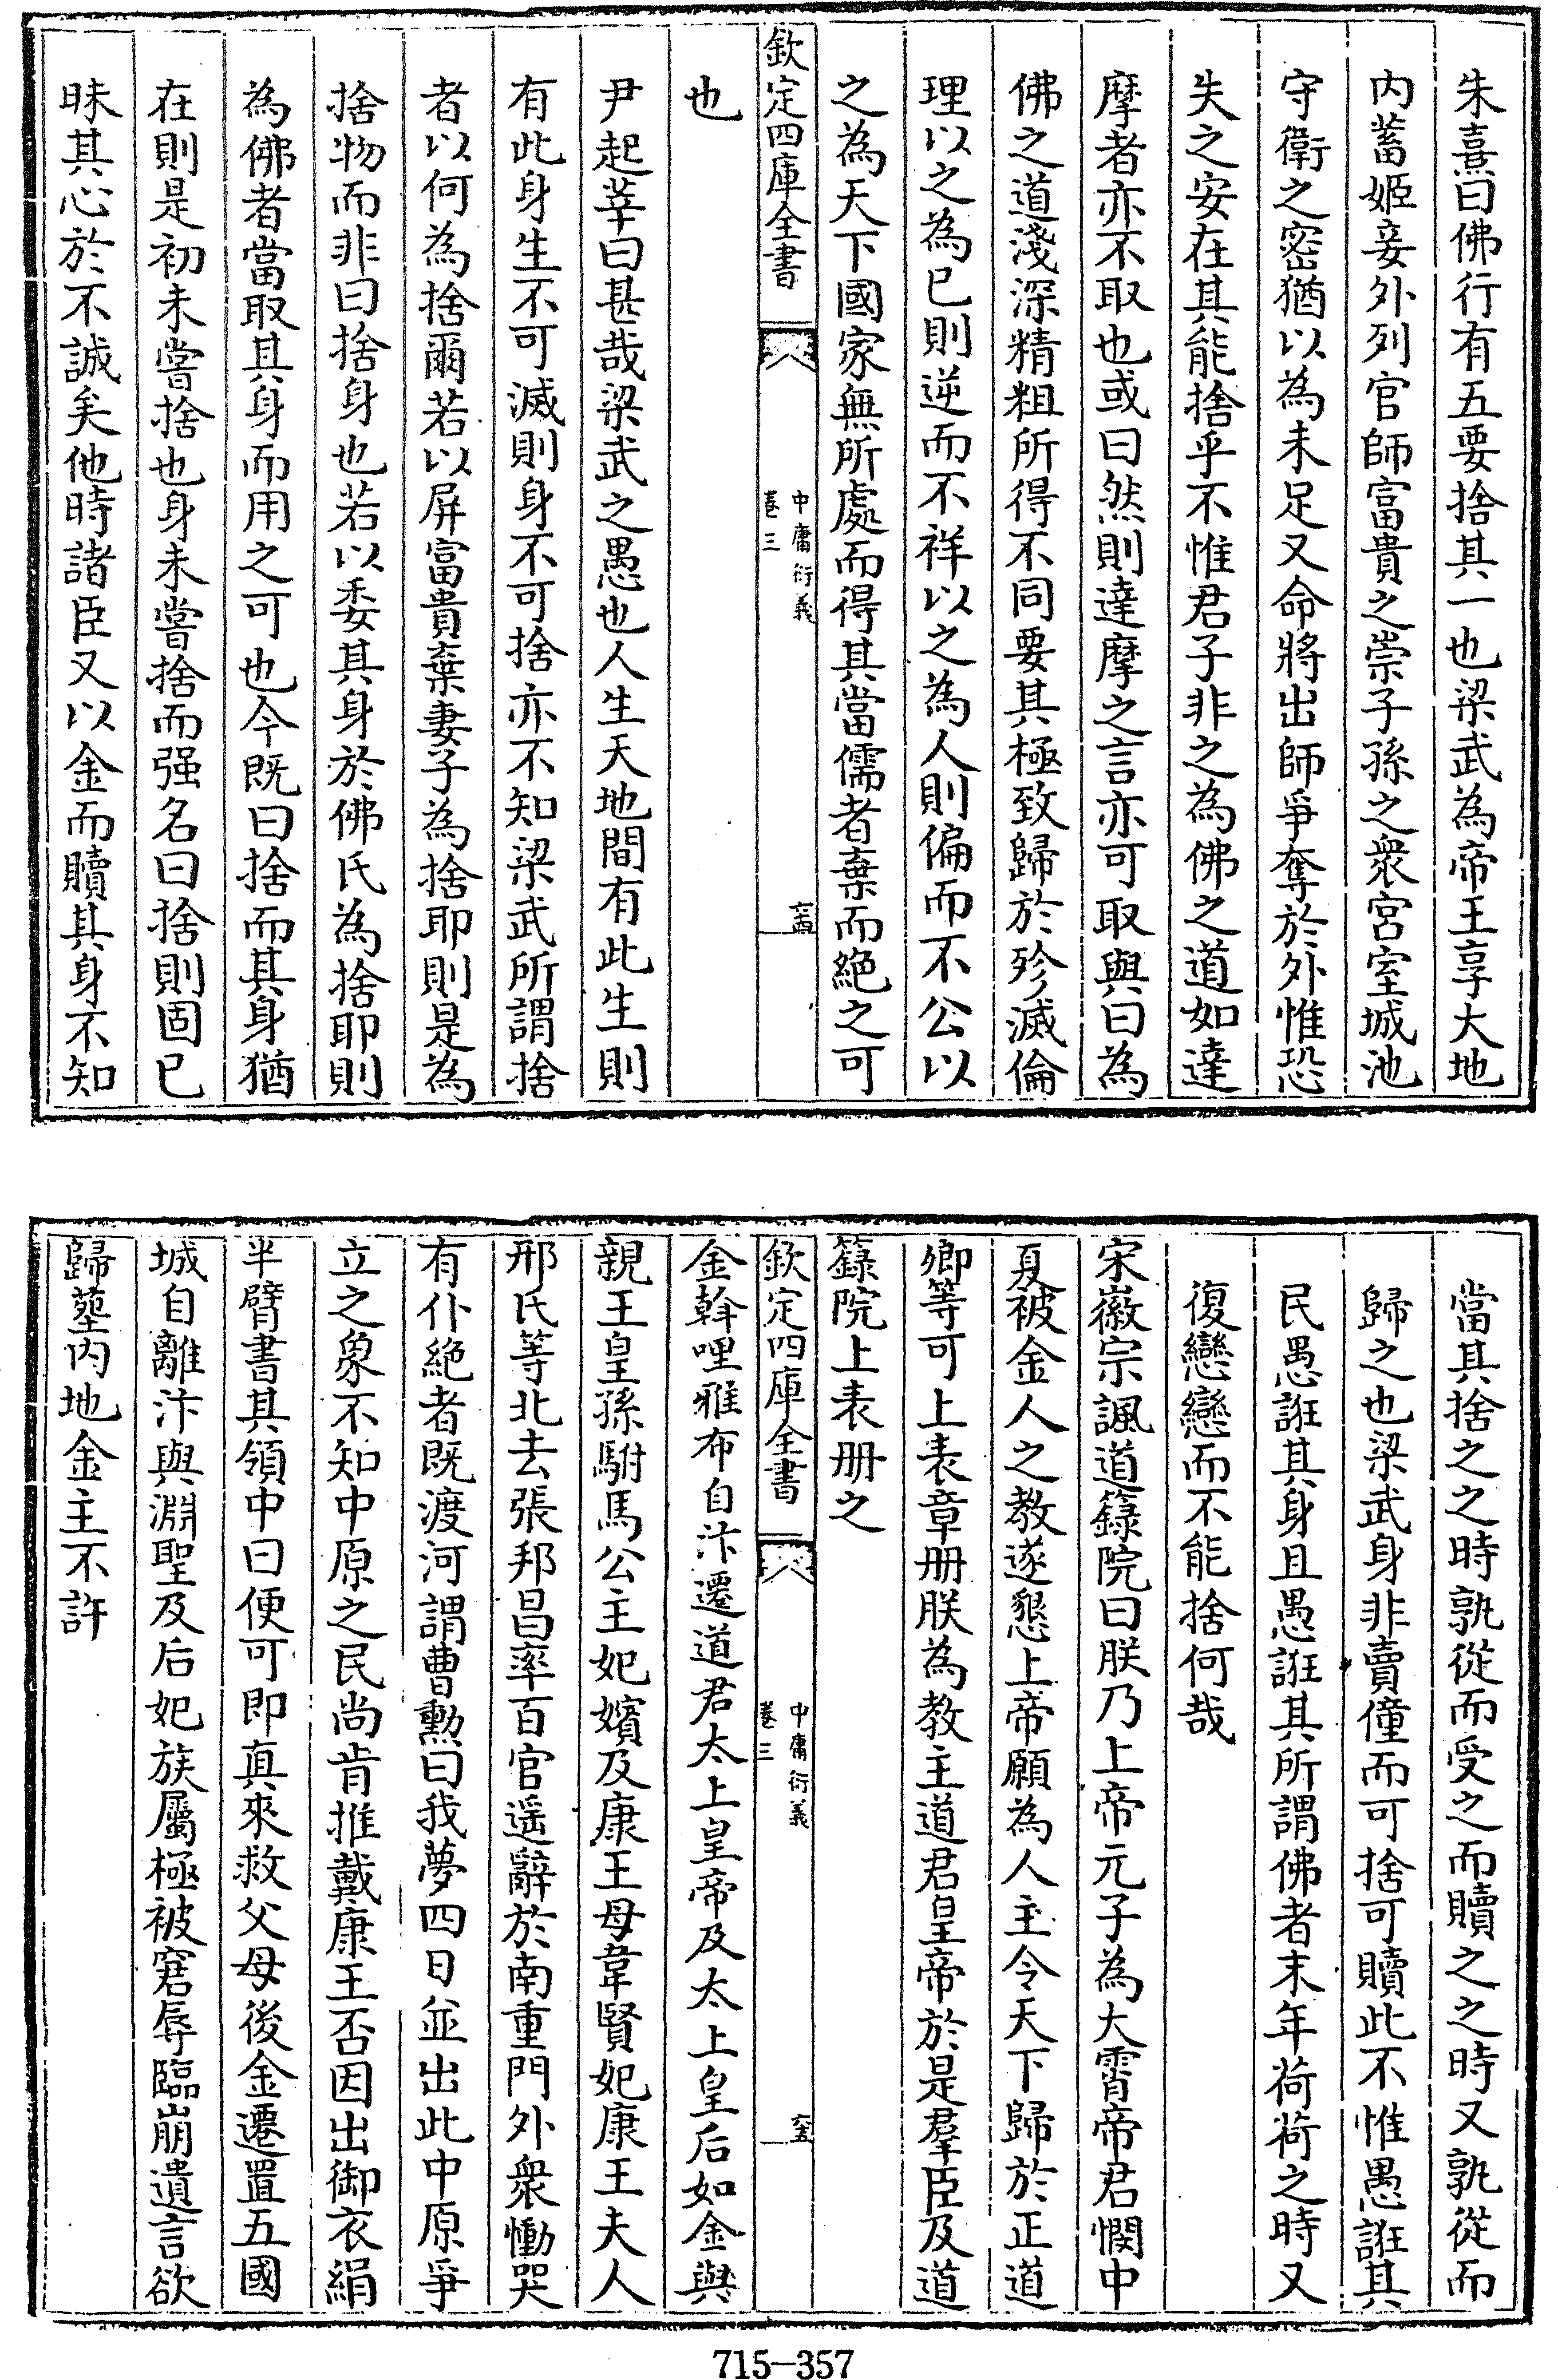 朱熹曰佛行有五要捨其一也梁武為帝王享大地
内蓄姬妾外列官師富貴之崇子孫之衆宫室城池
守衛之密猶以為未足又命將出師爭奪於外惟恐
失之安在其能捨乎不惟君子非之為佛之道如達
摩者亦不取也或曰然則達摩之言亦可取與曰為
佛之道淺深精粗所得不同要其極致歸於殄滅倫
理以之為已則逆而不祥以之為人則偏而不公以
之為天下國家無所處而得其當儒者棄而絶之可
欽定四庫全書
中庸衍義
卷三
六十四
也
尹起莘曰甚哉梁武之愚也人生天地間有此生則
有此身生不可滅則身不可捨亦不知梁武所謂捨
者以何為捨爾若以屏富貴棄妻子為捨耶則是為
捨物而非曰捨身也若以委其身於佛氏為捨耶則
為佛者當取其身而用之可也今既曰捨而其身猶
在則是初未嘗捨也身未嘗捨而强名曰捨則固已
昧其心於不誠矣他時諸臣又以金而贖其身不知
當其捨之之時孰從而受之而贖之之時又孰從而
歸之也梁武身非賣僮而可捨可贖此不惟愚誑其
民愚誑其身且愚誑其所謂佛者末年荷荷之時又
復戀戀而不能捨何哉
宋徽宗諷道籙院曰朕乃上帝元子為大霄帝君憫中
夏被金人之教遂懇上帝願為人主令天下歸於正道
卿等可上表章册朕為教主道君皇帝於是羣臣及道
籙院上表册之
欽定四庫全書
中庸衍義
卷三
六十五
金斡哩雅布自汴遷道君太上皇帝及太上皇后如金與
親王皇孫駙馬公主妃嬪及康王母韋賢妃康王夫人
邢氏等北去張邦昌率百官遥辭於南重門外衆慟哭
有仆絶者既渡河謂曹勳曰我夢四日並出此中原爭
立之象不知中原之民尚肯推戴康王否因出御衣絹
半臂書其領中曰便可即真來救父母後金遷置五國
城自離汴與淵聖及后妃族屬極被窘辱臨崩遺言欲
歸塟内地金主不許
715-357